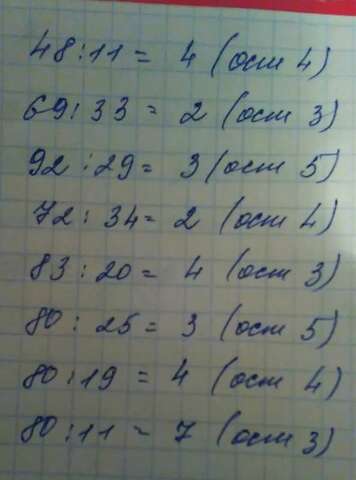 48:11= 4 (ост 4)
69:33= 2 (ост 3)
92:29= 3 (ост 5)
72:34= 2 (ост 4)
83:20= 4 (ост 3)
80:25= 3 (ост 5)
80:19= 4 (ост 4)
80:11= 7 (ост 3)